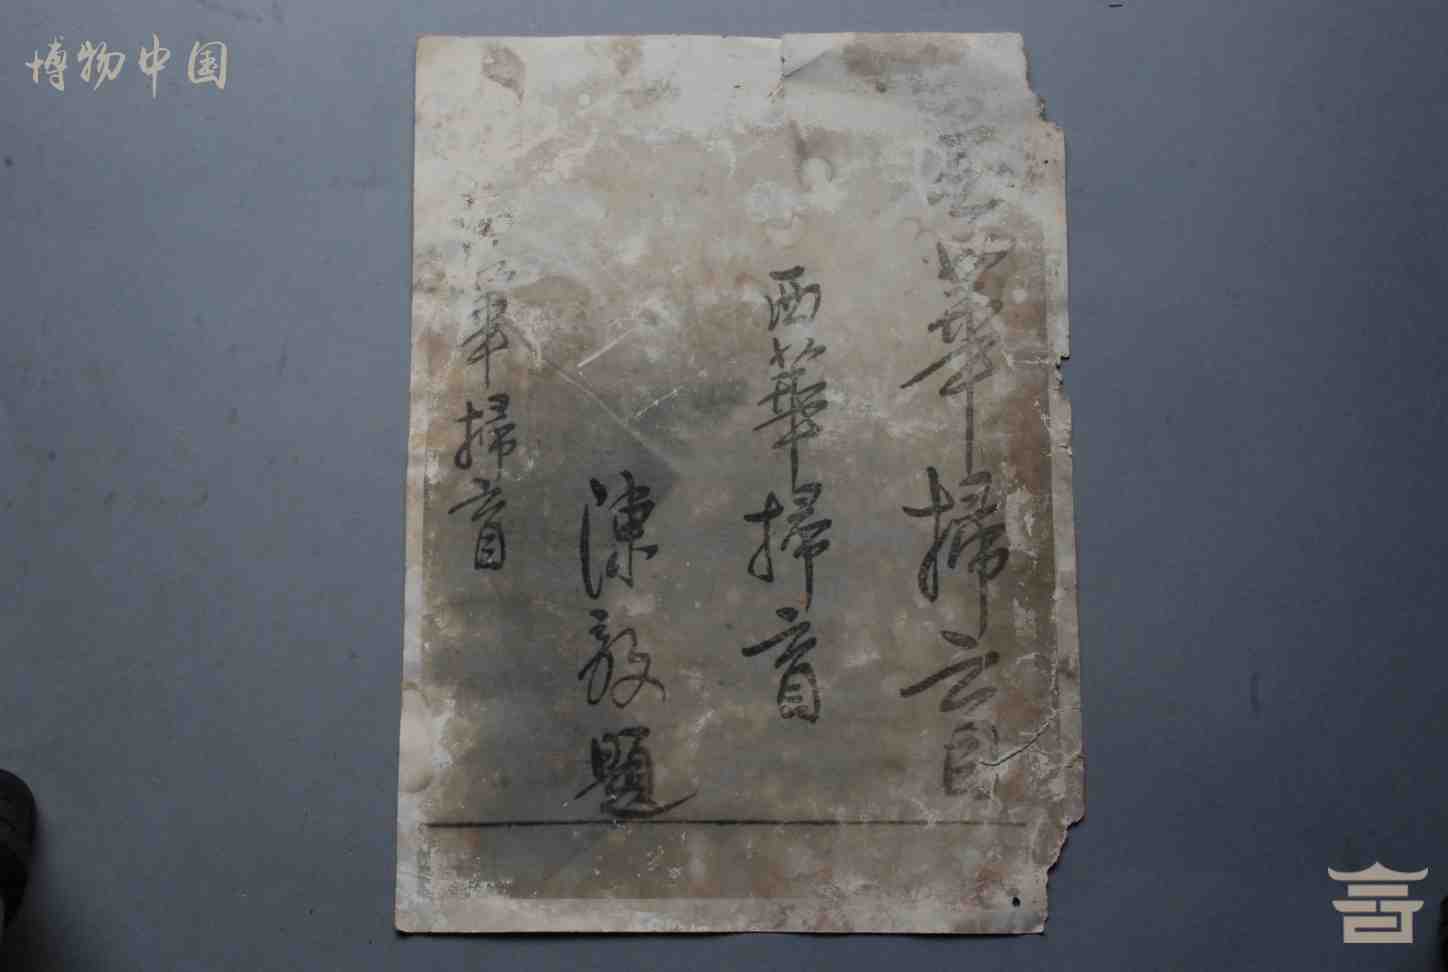 博物中国
西華掃盲
西華掃盲
陳毅題
華掃盲